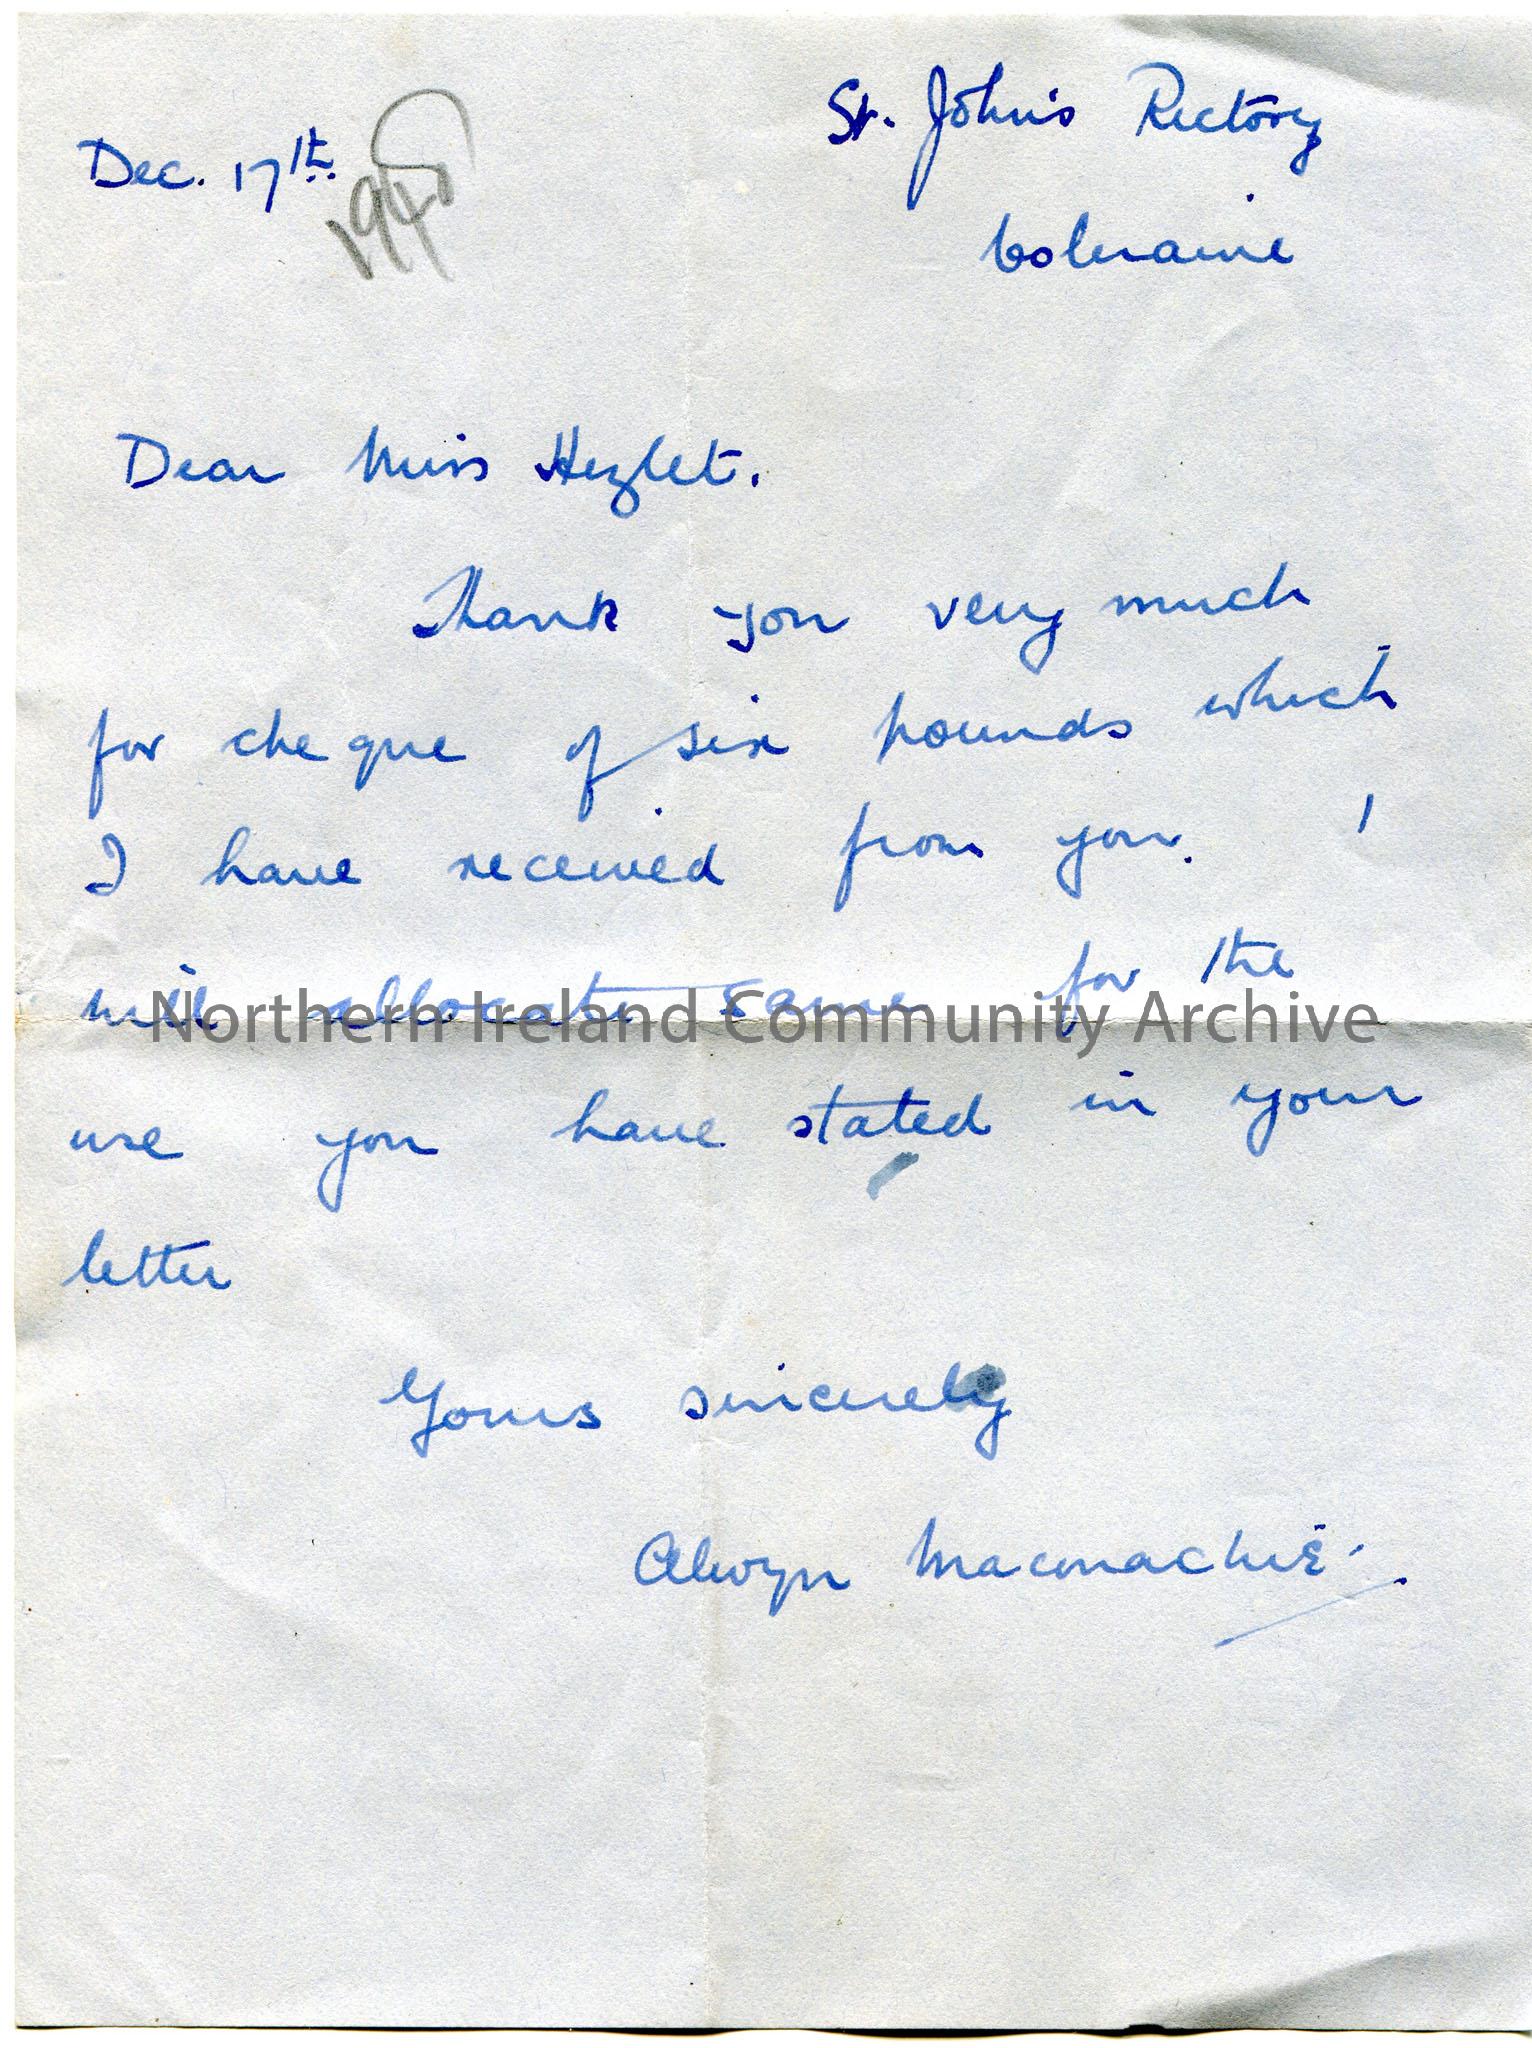 St. John's Rectory
Dec. 17th
Coleraine
Dear Miss Hezlet.
Thank you very much
for cheque of six pounds which
I have received from you. I
will allocate same for the
Northern Ireland Community Archive
use you have stated in your
letter
Yours sincerely
Alwyn Maconachie.